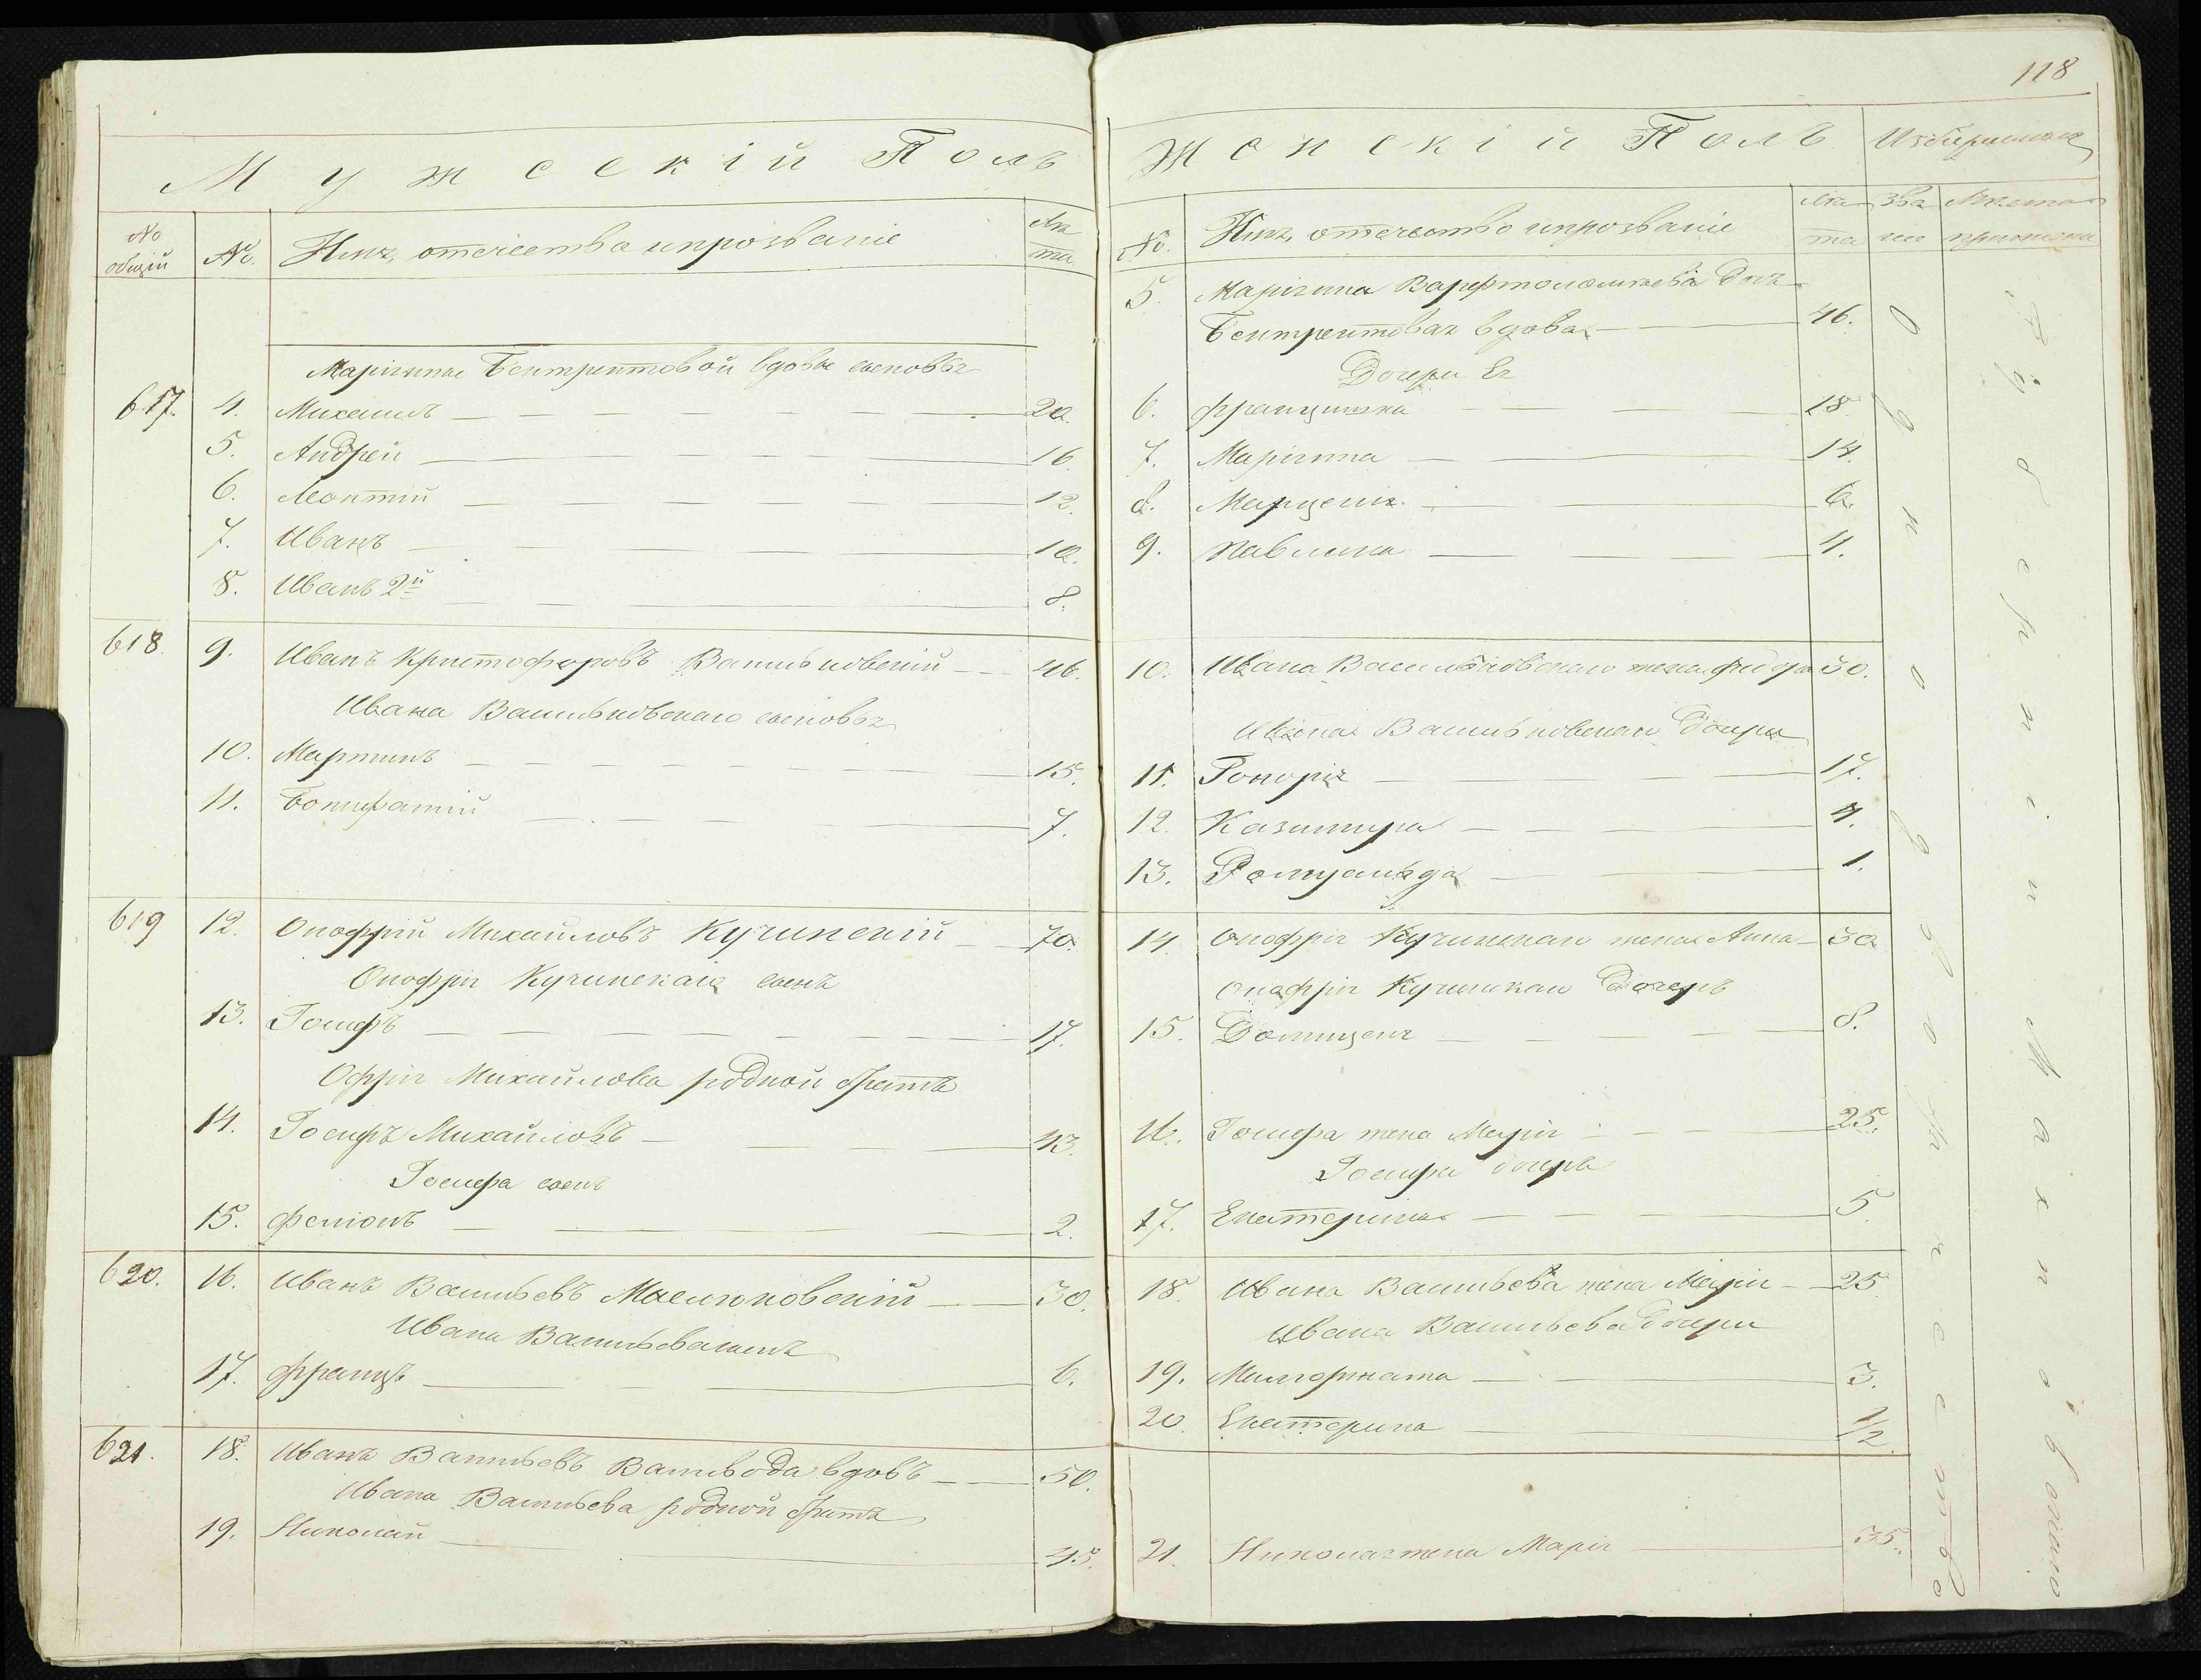 118
Мужеский Полъ
№ общій
№.
Имя, отчество и прозваніе
Лѣта
Маріянны Бентрентовой вдовы сыновья
617. 4. Михаилъ 20.
5. Андрей 16.
6. Леонтій 12.
7. Иванъ 10.
8. Иванъ 2й 8.
618. 9. Иванъ Христофоровъ Васильковскій 46.
Ивана Васильковскаго сыновья
10. Мартинъ 15.
11. Бонифатій 7.
619 12. Онофрій Михайловъ Кучинскій 70.
Онофрія Кучинскаго сынъ
13. Іосифъ 17.
Офрія Михайлова родной братъ
14. Іосифъ Михайловъ 43.
Іосифа сынъ
15. Феліонъ 2.
620. 16. Иванъ Васильевъ Маслюковскій 30.
Ивана Васильева сынъ
17. Францъ 6.
621. 18. Иванъ Васильевъ Валивода вдовъ 50.
Ивана Васильева родной братъ
19. Николай 45.
Женскій Полъ
Избираемые
№.
Имя, отчество и прозваніе
Лѣта
Званіе
Мѣсто приписки
5. Маріянна Варфтоломѣева Дочь
Бентрентовая вдова 46.
Дочери Ея
6. Францишка 18.
7. Маріянна 14.
8. Марцеля 6.
9. Павлина 4.
10. Ивана Васильковскаго жена 30.
Ивана Васильковскаго Дочери
11. Гонорія 17.
12. Казимира 4.
13. Ромуальда 1.
14. Онофрія Кучинскаго жена Анна 30
Онофрія Кучинскаго Дочерь
15. Домицеля 8.
16. Іосифа жена Марія 25.
Іосифа дочерь
17. Екатерина 5.
18. Ивана Васильева жена Марія 25.
Ивана Васильева дочери
19. Малгоржата 3.
20. Екатерина 1/2.
21. Николая жена Марія 35.
Однодворческое
Въ Губерніи